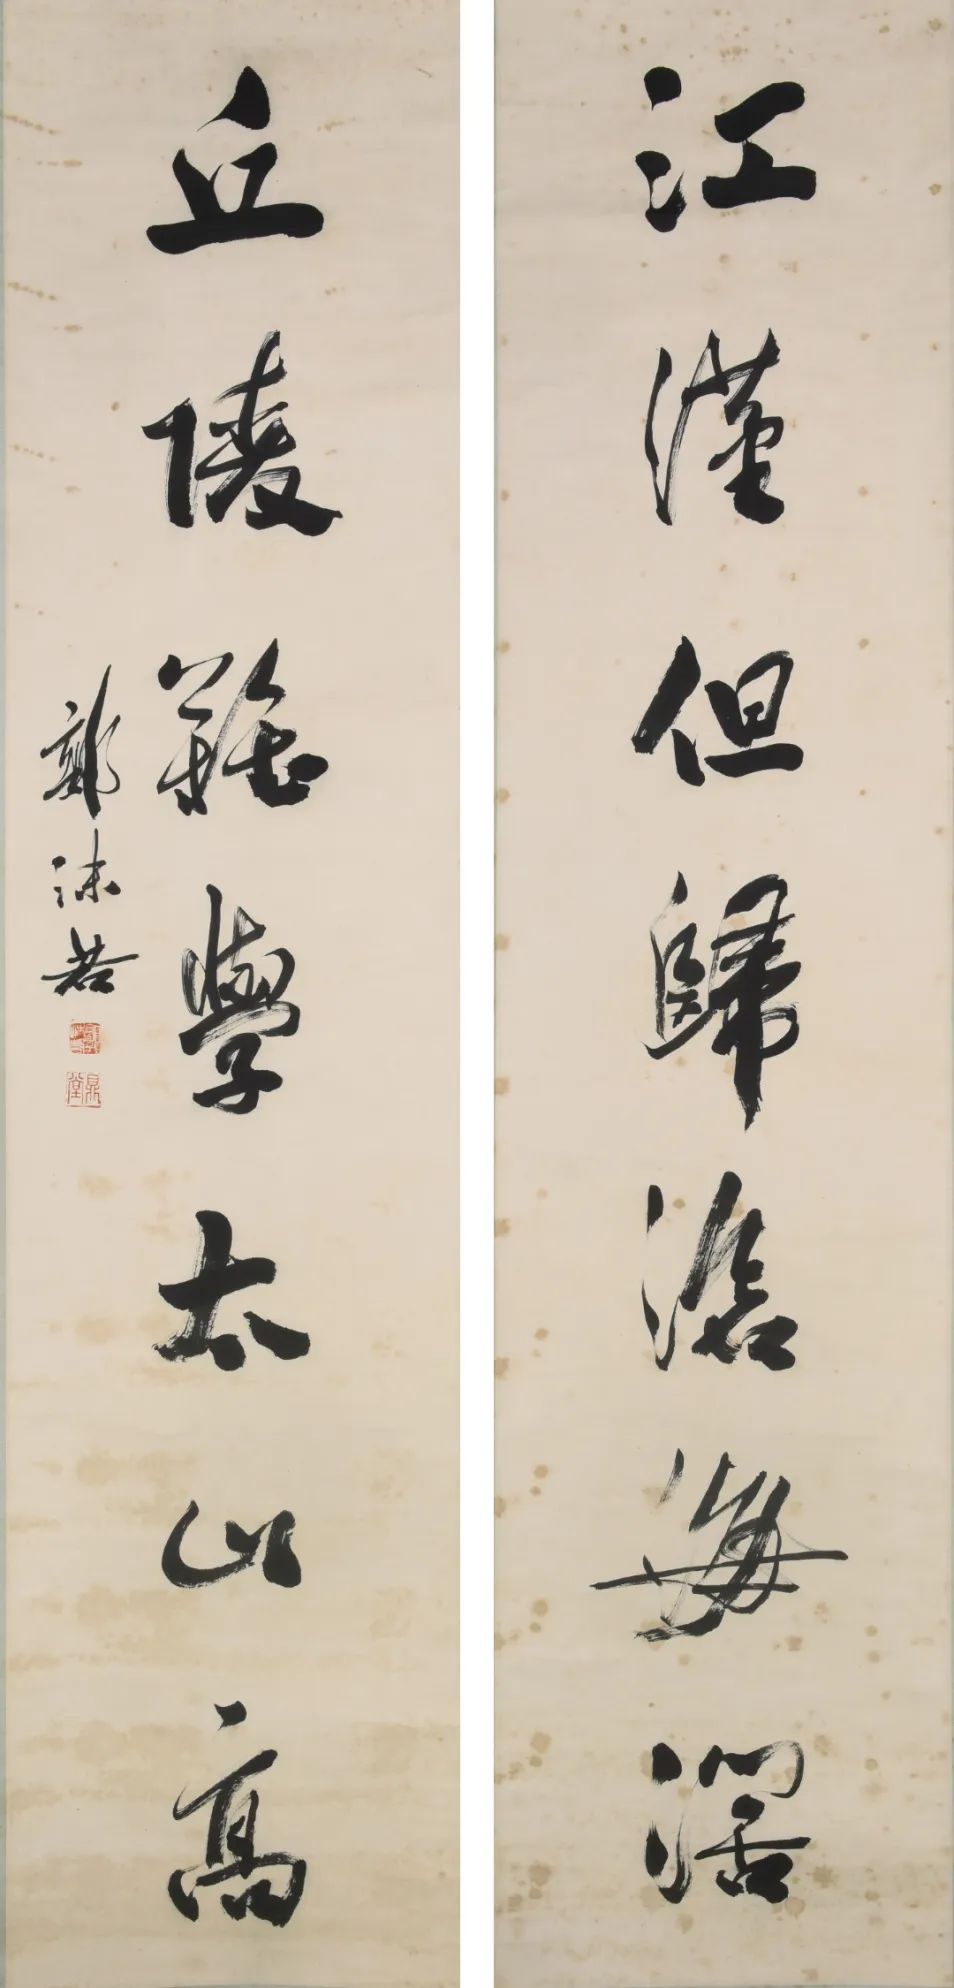 江漢但歸滄海濶
丘陵難學太山高
郭沫若
鼎堂